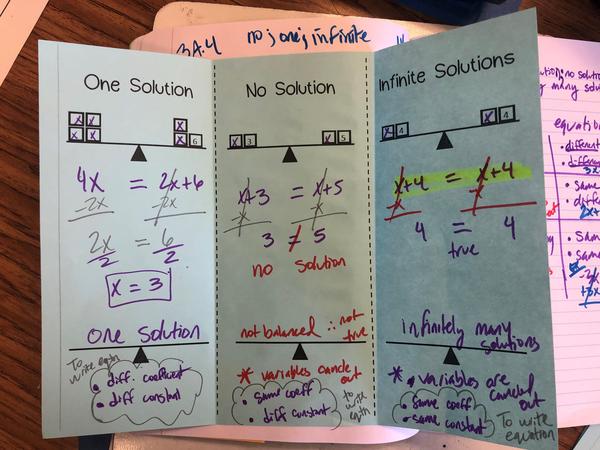 3A.4 no, one, infinite
One Solution
x x
x x
x
x 6
4x = 2x+6
-2x -2x
2x = 6
2 2
x = 3
one solution
To write eqtn
• diff. coefficient
• diff constant
No Solution
x 3
x 5
x+3 = x+5
-x -x
3 ≠ 5
no solution
not balanced ∴ not true
* variables cancle out
• same coeff
• diff constant
to write eqtn
Infinite Solutions
x 4
x 4
x+4 = x+4
-x -x
4 = 4
true
infinitely many solutions
* • variables are cancled out
• same coeff
• same constant
To write equation
no solu
many solu
equation
• different
• different
• same
• diffe
• same
• same